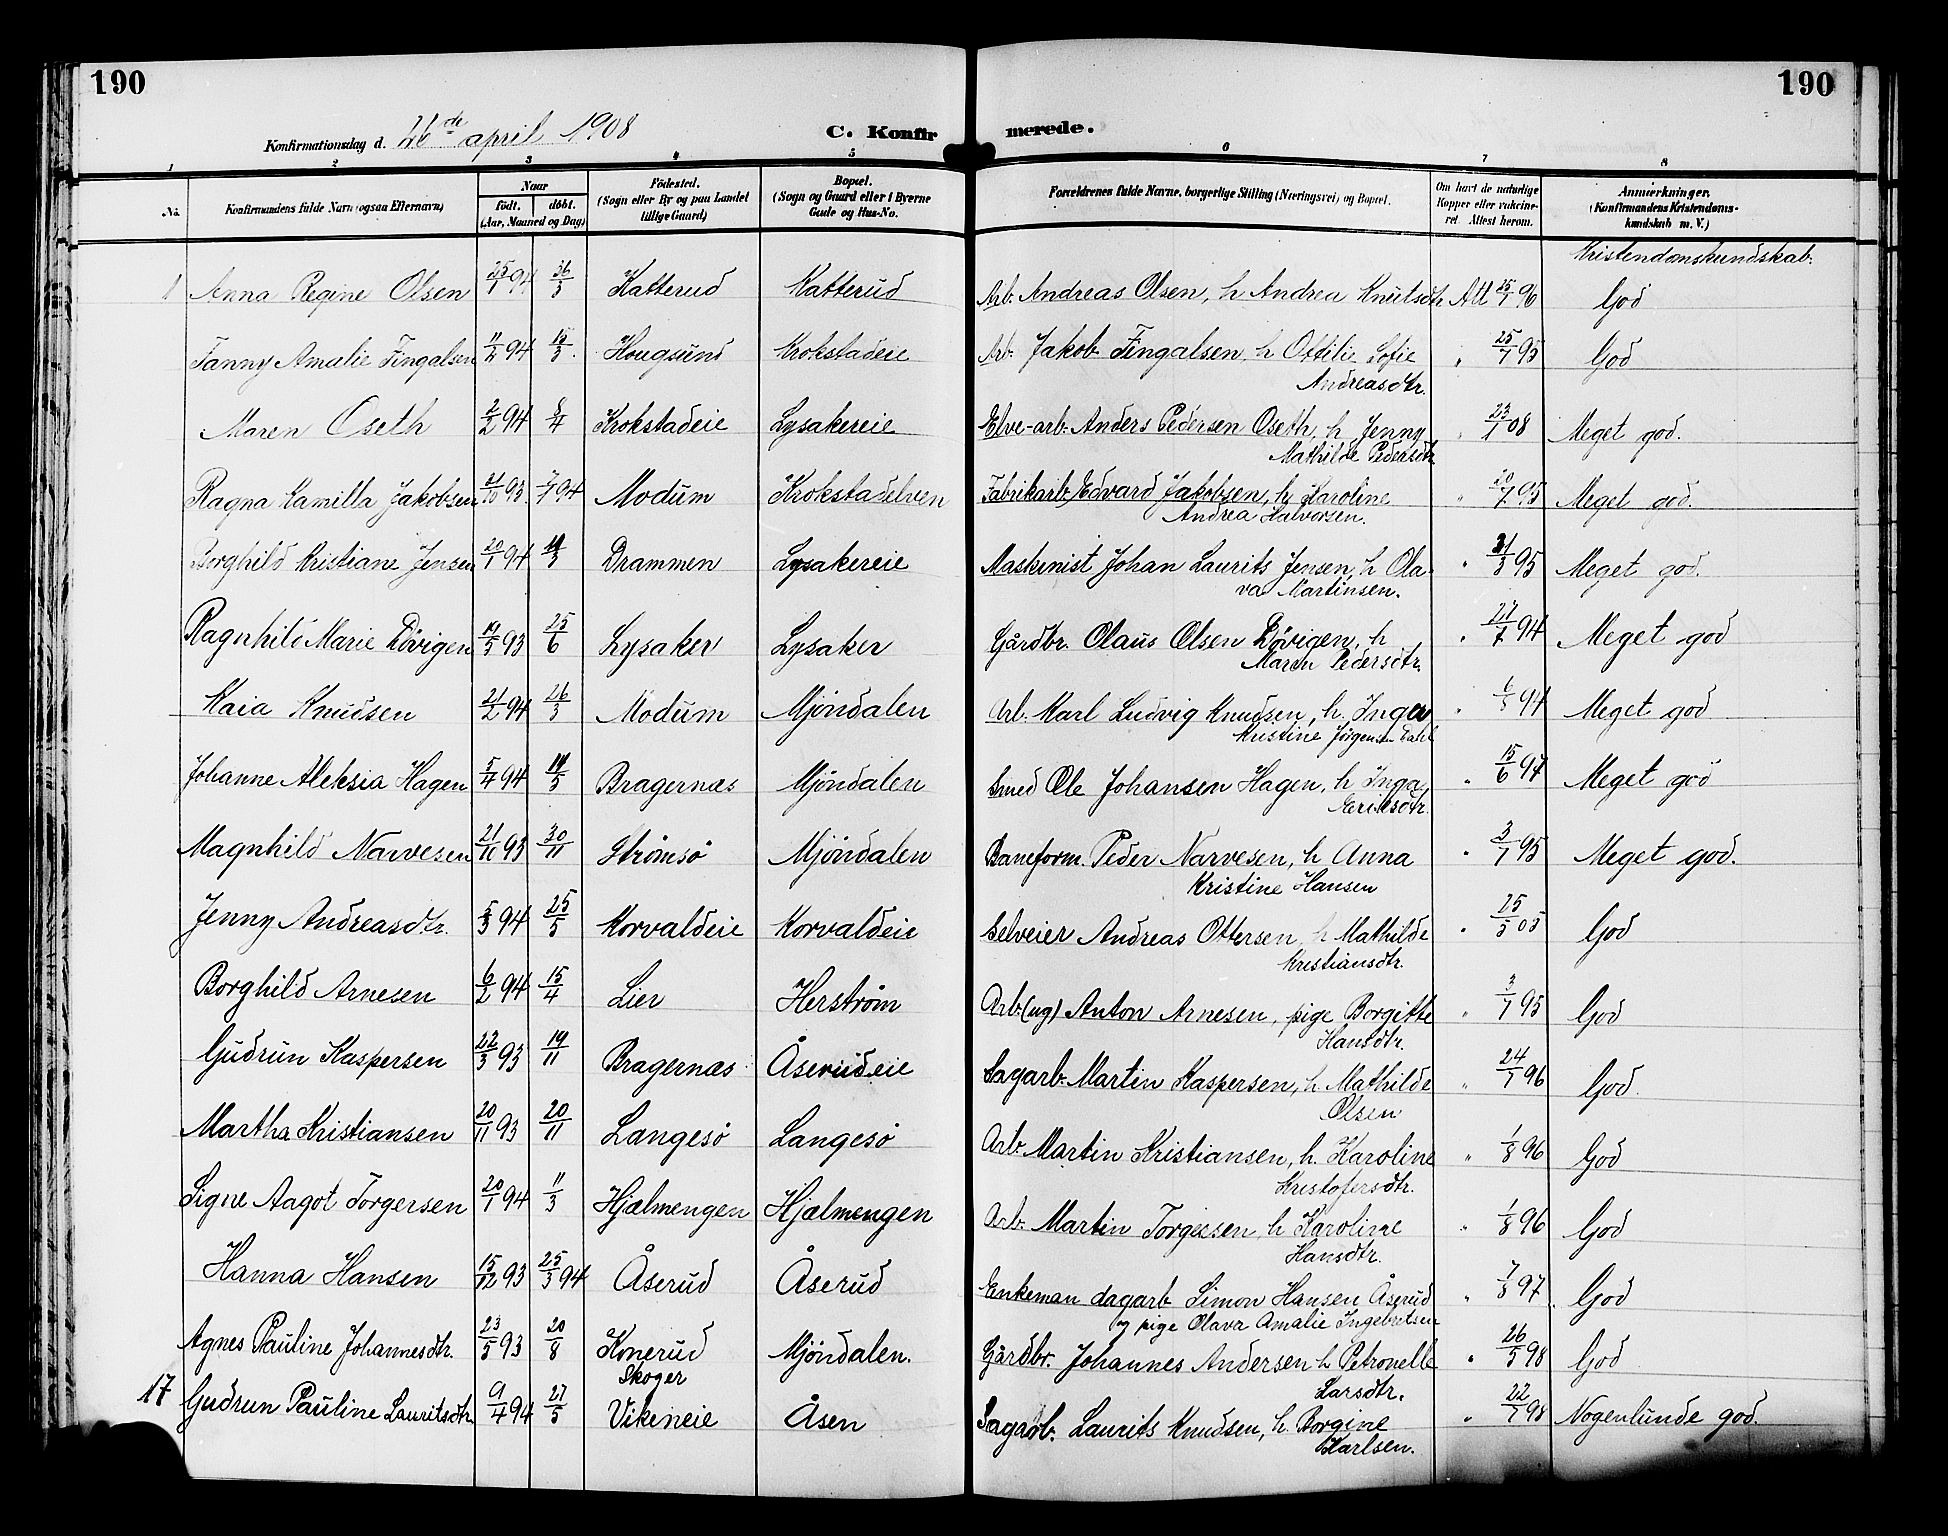 190
190
Konfirmationsdag d. 26de april 1908
C. Konfirmerede.
1 2 3 4 5 6 7 8
No.
Konfirmandens fulde Navn (ogsaa Efternavn)
Naar
födt. döbt.
(Aar, Maaned og Dag)
Födested.
(Sogn eller By og paa Landet
tillige Gaard)
Bopæl.
(Sogn og Gaard eller i Byerne
Gade og Hus-No.
Forældrenes fulde Navne, borgerlige Stilling (Næringsvei) og Bopæl.
Om havt de naturlige
Kopper eller vakcine-
ret. Attest herom.
Anmærkninger.
(Konfirmandens Kristendoms-
kundskab m. V.)
Kristendomskundskab.
1 Anna Regine Olsen 25/1 94 26/3 Katterud Katterud Arb. Andreas Olsen, h Andrea Knutsdtr Att 25/7 96 God
Fanny Amalie Fingalsen 11/2 94 15/3 Hougsund Krokstadeie Arb. Jakob Fingalsen, h Ottilie Sofie " 25/7 95 God
Andreasdtr.
Maren Oseth 2/2 94 8/4 Krokstadeie Lysakereie Elve-arb. Anders Pedersen Oseth, h. Jenny " 23/1 08 Meget god.
Mathilde Pedersdtr
Ragna Kamilla Jakobsen 21/10 93 7/7 94 Modum Krokstadelven Fabrikarb. Edvard Jakobsen, h. Karoline " 20/7 95 Meget god.
Andrea Halvorsen.
Borghild Kristiane Jensen 20/1 94 /3 Drammen Lysakereie Maskinist Johan Laurits Jensen, h Ola- " 31/3 95 Meget god.
va Martinsen.
Ragnhild Marie Dövigen 19/5 93 25/6 Lysaker Lysaker Gårdbr. Olaus Olsen Dövigen, h " 27/7 94 Meget god
Maren Pedersdtr.
Kaia Knudsen 21/2 94 26/3 Modum Mjöndalen Arb. Karl Ludvig Knudsen, h. Inga " 94 Meget god
Kristine Jörgensen Dahl
Johanne Aleksia Hagen 5/4 94 14/5 Bragernæs Mjöndalen Smed Ole Johansen Hagen, h Inga " 15/6 97 Meget god
Eriksdtr.
Magnhild Narvesen 21/10 93 30/11 Strömsö Mjöndalen Baneform. Peder Narvesen, h Anna " 3/7 95 Meget god.
Kristine Hansen
Jenny Andreasdtr. 5/3 94 25/5 Korvaldeie Korvaldeie Selveier Andreas Ottersen, h Mathilde " 25/5 05 God
Kristiansdtr.
Borghild Arnesen 6/2 94 15/4 Lier Herström Arb. (ug) Anton Arnesen, pige Borgitte " 3/7 95 God
Hansdtr.
Gudrun Kaspersen 22/3 93 19/11 Bragernæs Åserudeie Sagarb. Martin Kaspersen, h. Mathilde " 24/7 96 God.
Olsen
Martha Kristiansen 20/11 93 20/11 Langesö Langesö Arb. Martin Kristiansen, h. Karoline " 1/8 96 God
Kristofersdtr.
Signe Aagot Torgersen 20/1 94 11/3 Hjælmengen Hjælmengen Arb. Martin Torgersen, h Karoline " 1/8 96 God
Hansdtr.
Hanna Hansen 15/12 93 25/3 94 Åserud Åserud Enkeman dagarb. Simon Hansen Åserud " 7/8 97 God
og pige Olava Amalie Ingebritsen
Agnes Pauline Johannesdtr. 23/5 93 20/8 Konerud Mjöndalen. Gårdbr. Johannes Andersen h Petronelle " 26/5 98 God
Skoger
Larsdtr.
17 Gudrun Pauline Lauritsdtr. 9/4 94 27/5 Vikeneie Åsen Sagarb. Laurits Knudsen, h. Borgine " 22/7 98 Nogenlunde god.
Karlsen.